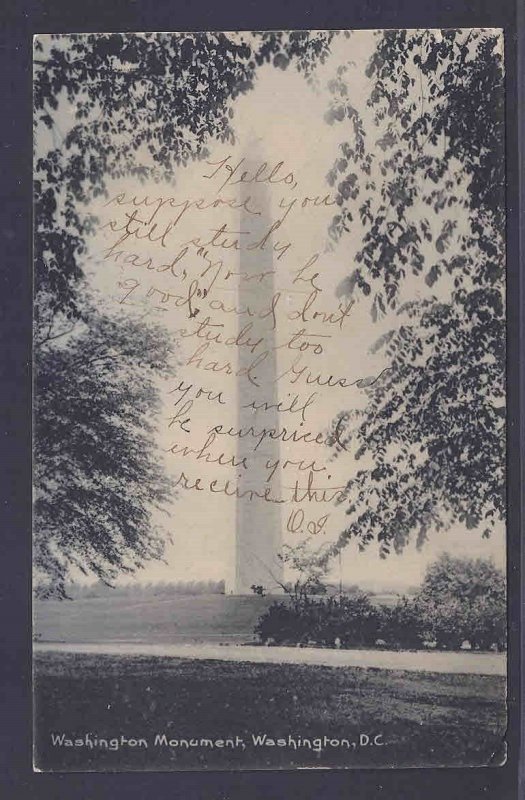 Hello,
suppose you
still study
hard, "Now be
good" and don't
study too
hard Guess
you will
be surpriced
when you
receive this
O.I.
Washington Monument, Washington, D.C.